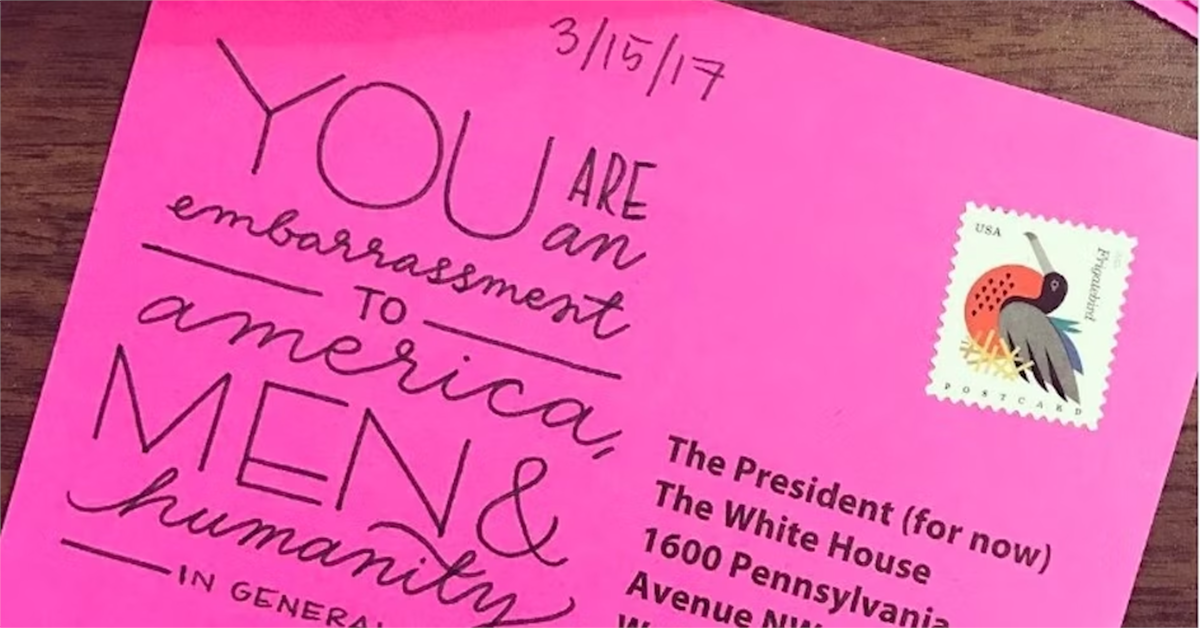 3/15/17
YOU ARE
an
embarrassment
TO
america,
MEN &
humanity
IN GENERAL
USA
Frigatebird
POSTCARD
The President (for now)
The White House
1600 Pennsylvania
Avenue NW